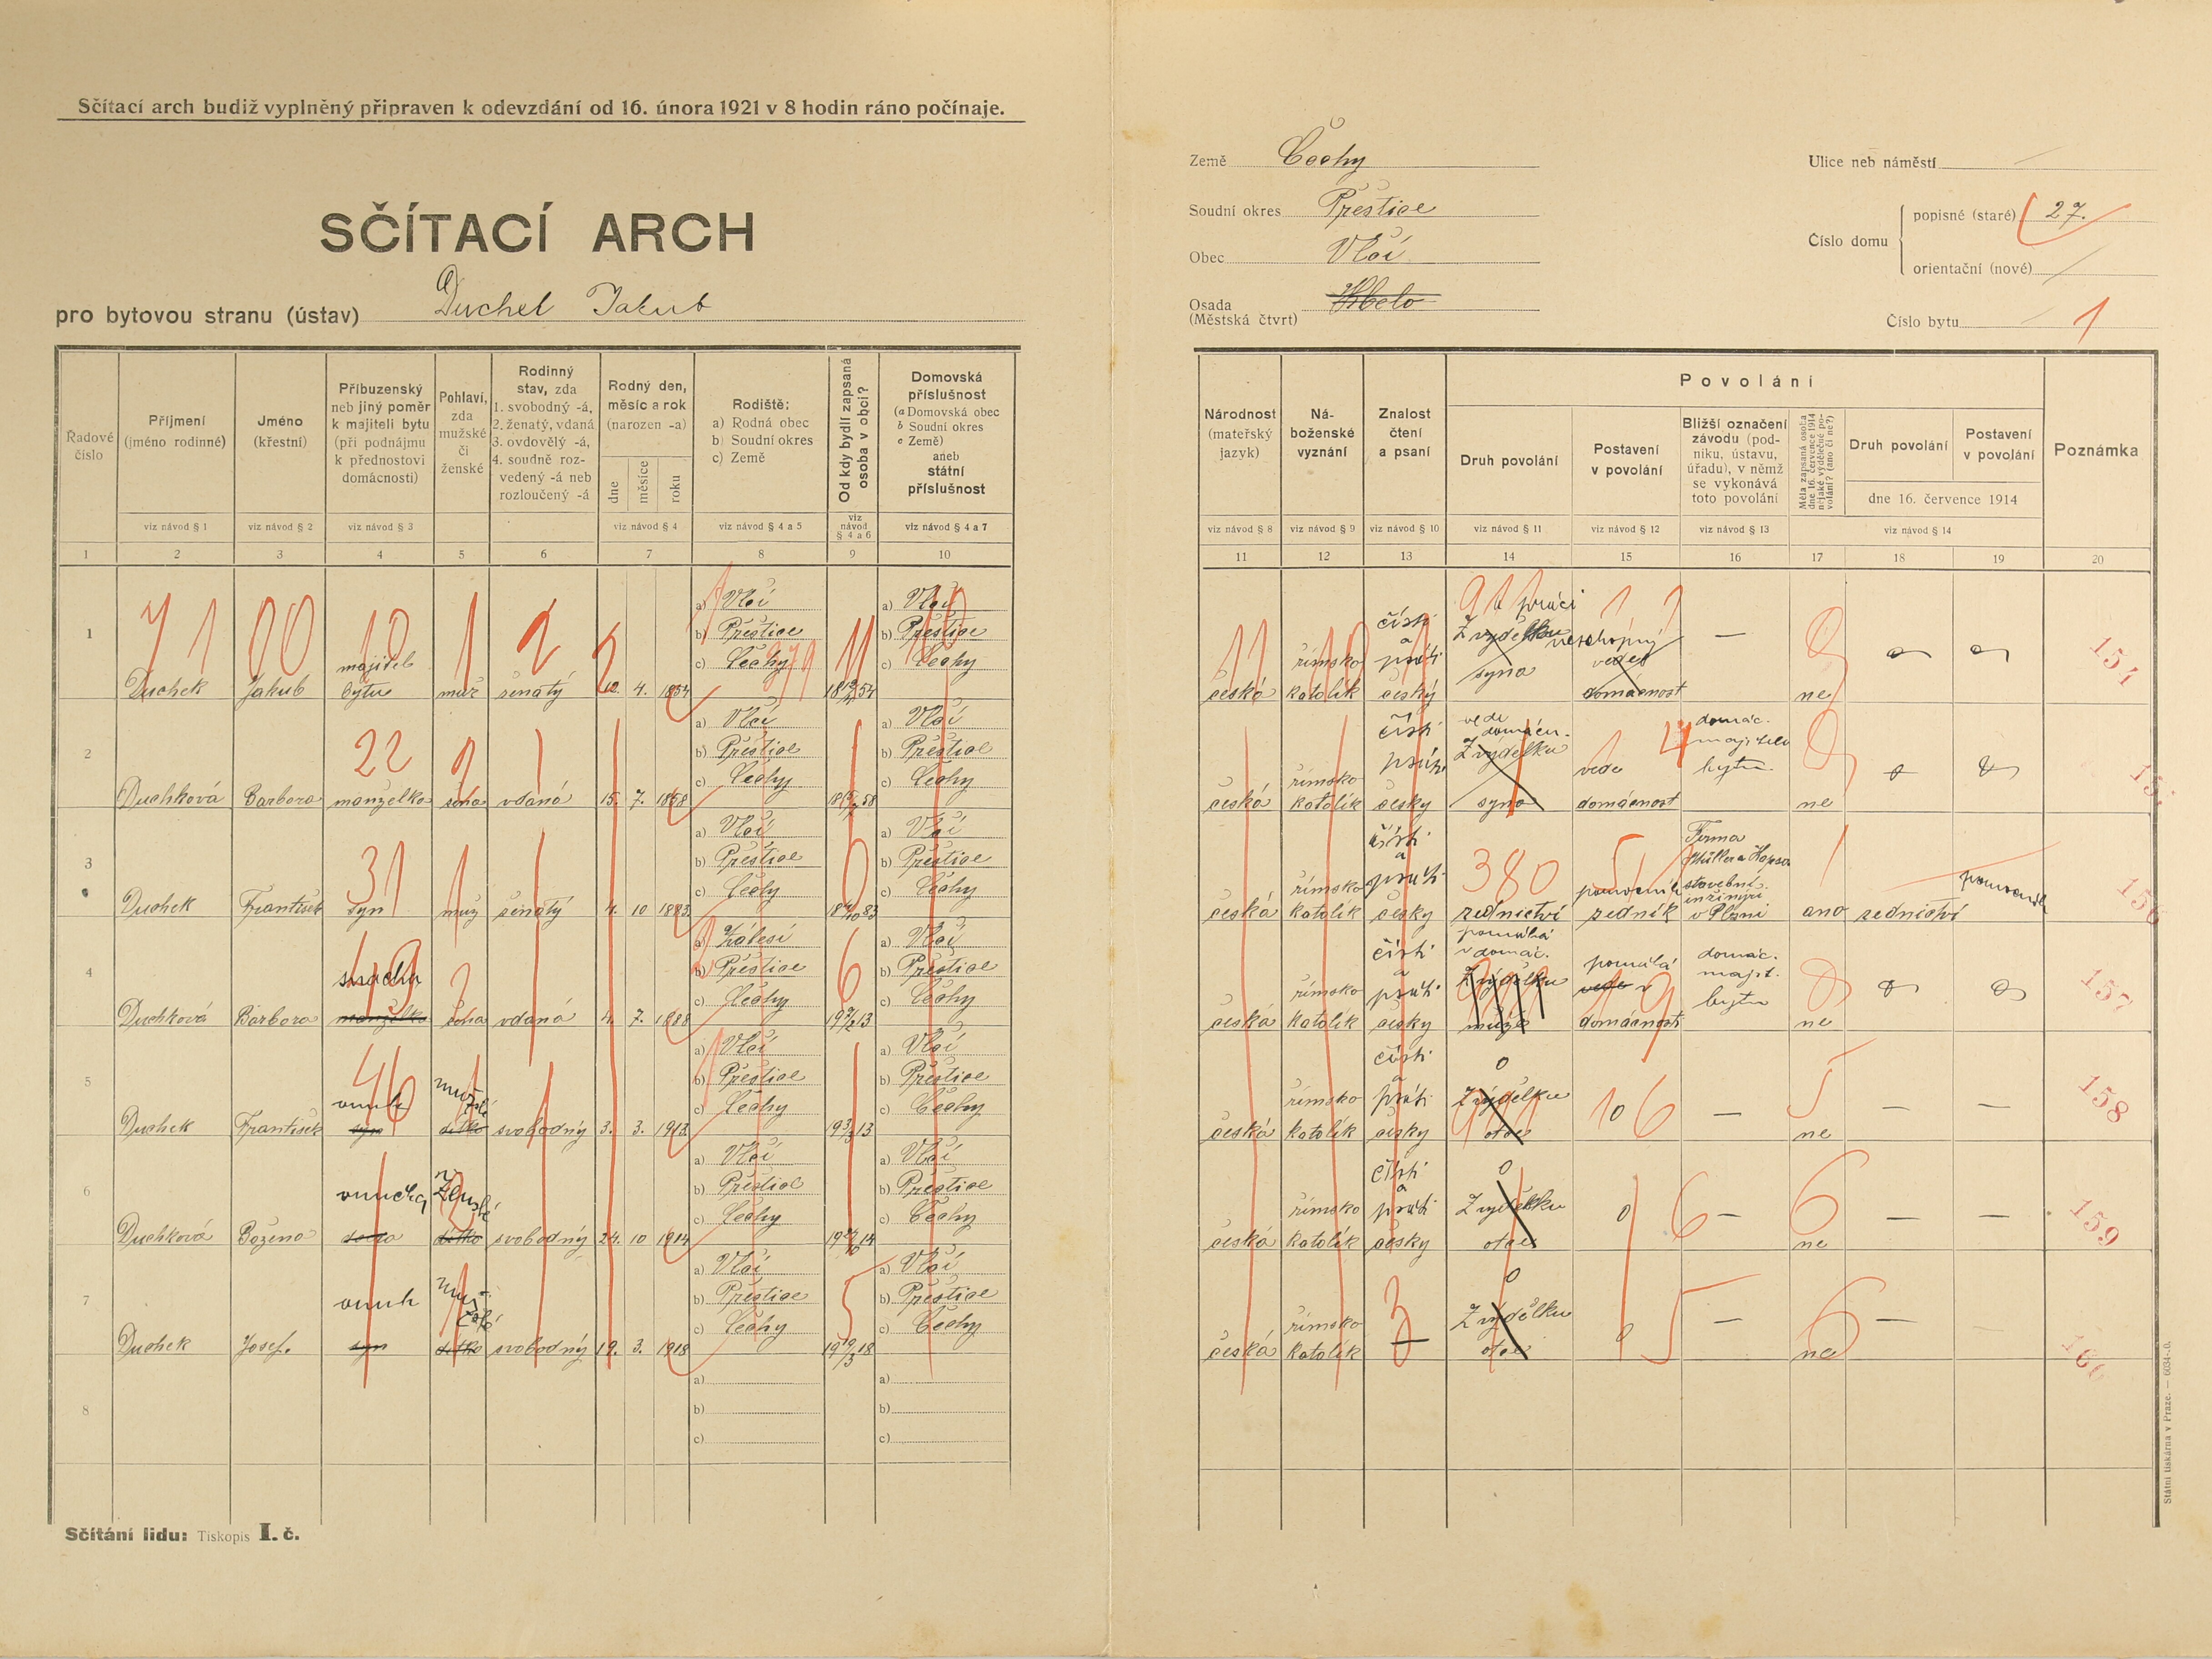 Sčítací arch budiž vyplněný připraven k odevzdání od 16. února 1921 v 8 hodin ráno počínaje.
SČÍTACÍ ARCH
pro bytovou stranu (ústav) Duchek Jakub
Země Čechy
Soudní okres Přeštice
Obec Vlčí
Osada
(Městská čtvrt)
Ulice neb náměstí
Číslo domu
popisné (staré) 27.
orientační (nové)
Číslo bytu 1
Řadové číslo
Příjmení (jméno rodinné)
Jméno (křestní)
Příbuzenský neb jiný poměr k majiteli bytu (při podnájmu k přednostovi domácnosti)
Pohlaví, zda mužské či ženské
Rodinný stav, zda 1. svobodný -á, 2. ženatý, vdaná 3. ovdovělý -á, 4. soudně rozvedený -á neb rozloučený -á
Rodný den, měsíc a rok (narozen -a)
dne měsíce roku
Rodiště: a) Rodná obec b) Soudní okres c) Země
Od kdy bydlí zapsaná osoba v obci?
Domovská příslušnost (a Domovská obec b Soudní okres c Země) aneb státní příslušnost
Národnost (mateřský jazyk)
Náboženské vyznání
Znalost čtení a psaní
Povolání
Druh povolání
Postavení v povolání
Bližší označení závodu (podniku, ústavu, úřadu), v němž se vykonává toto povolání
Měla zapsaná osoba dne 16. července 1914 nějaké výdělečné povolání? (ano či ne?)
Druh povolání
Postavení v povolání
dne 16. července 1914
Poznámka
viz návod § 1 viz návod § 2 viz návod § 3 viz návod § 4 viz návod § 4 a 5 viz návod § 4 a 6 viz návod § 4 a 7 viz návod § 8 viz návod § 9 viz návod § 10 viz návod § 11 viz návod § 12 viz návod § 13 viz návod § 14
1 2 3 4 5 6 7 8 9 10 11 12 13 14 15 16 17 18 19 20
1 Duchek Jakub majitel bytu muž ženatý 12. 4. 1854 a) Vlčí b) Přeštice c) Čechy a) Vlčí b) Přeštice c) Čechy
česká římsko katolík čísti a psáti český Z výdělku syna práci neschopný vede domácnost — ne
2 Duchková Barbora manželka žena vdaná 15. 7. 1858 a) Vlčí b) Přeštice c) Čechy a) Vlčí b) Přeštice c) Čechy
česká římsko katolík čísti psáti česky vede domácn. Z výdělku syna vede domácnost domác. majitele bytu ne
3 Duchek František syn muž ženatý 4. 10 1883 a) Vlčí b) Přeštice c) Čechy a) Vlčí b) Přeštice c) Čechy
česká římsko katolík čísti a psáti česky 380 zednictví pomocník zedník Firma stavební inžinýři v Plzni ano zednictví pomocník
4 Duchková Barbora snacha manželka žena vdaná 4. 7. 1888 a) Zálesí b) Přeštice c) Čechy a) Vlčí b) Přeštice c) Čechy
česká římsko katolík čísti a psáti česky pomáhá v domác. Z výdělku muže pomáhá vede v domácnosti domác. majit. bytu ne
5 Duchek František vnuk syn mužské dítko svobodný 3. 3. 1913 a) Vlčí b) Přeštice c) Čechy a) Vlčí b) Přeštice c) Čechy
česká římsko katolík čísti a psáti česky Z výdělku otce — ne — —
6 Duchková Božena vnučka dcera ženské dítko svobodný 24. 10 1914 a) Vlčí b) Přeštice c) Čechy a) Vlčí b) Přeštice c) Čechy
česká římsko katolík čísti a psáti česky Z výdělku otce — ne — —
7 Duchek Josef. vnuk syn mužské dítko svobodný 19. 3. 1918 a) Vlčí b) Přeštice c) Čechy a) Vlčí b) Přeštice c) Čechy
česká římsko katolík — Z výdělku otce — ne —
8 a) b) c) a) b) c)
157
158
159
160
Sčítání lidu: Tiskopis I. č.
Státní tiskárna v Praze. — 6034-.0.